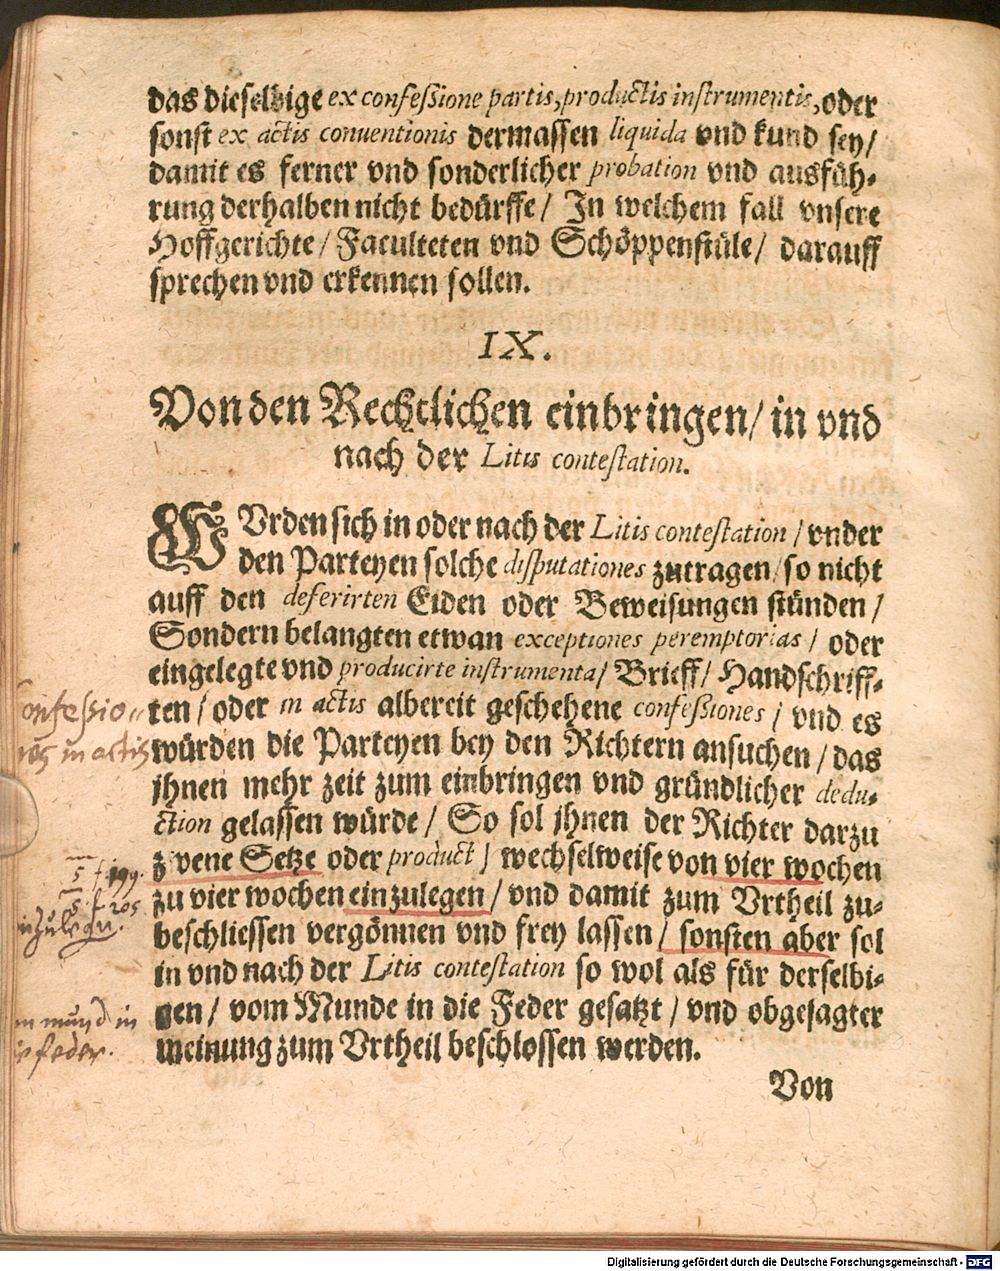 das dieselbige ex confessione partis, productis instrumentis, oder
sonst ex actis conuentionis dermassen liquida vnd kund sey/
damit es ferner vnd sonderlicher probation vnd ausfüh-
rung derhalben nicht bedürffe/ In welchem fall vnsere
Hoffgerichte/ Faculteten vnd Schöppenstüle/ darauff
sprechen vnd erkennen sollen.
IX.
Von den Rechtlichen einbringen/ in vnd
nach der Litis contestation.
WUrden sich in oder nach der Litis contestation / vnder
den Parteyen solche disputationes zutragen/ so nicht
auff den deferirten Eiden oder Beweisungen stünden /
Sondern belangten etwan exceptiones peremptorias / oder
eingelegte vnd producirte instrumenta/ Brieff/ Handschriff-
ten / oder in actis albereit geschehene confessiones / vnd es
würden die Parteyen bey den Richtern ansuchen / das
jhnen mehr zeit zum einbringen vnd gründlicher dedu-
ction gelassen würde / So sol jhnen der Richter darzu
zwene Setze oder product / wechselweise von vier wochen
zu vier wochen einzulegen / vnd damit zum Vrtheil zu-
beschliessen vergönnen vnd frey lassen / sonsten aber sol
in vnd nach der Litis contestation so wol als für derselbi-
gen / vom Munde in die Feder gesatzt / vnd obgesagter
meinung zum Vrtheil beschlossen werden.
Von
onfessio-
in actis
199.
205
mund in
feder.
Digitalisierung gefördert durch die Deutsche Forschungsgemeinschaft - DFG